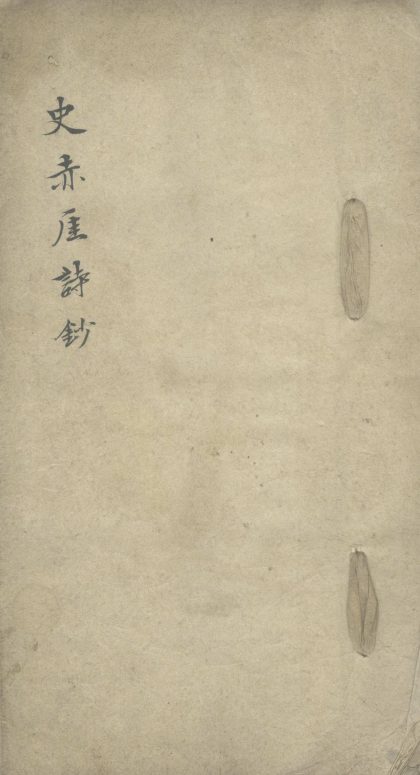 史赤厓詩鈔